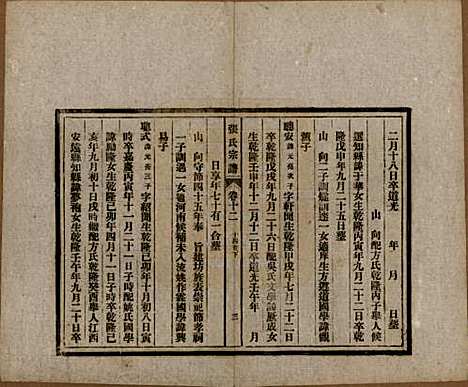 二月十八日卒道光　年　月　日塟
山　向配方氏乾隆丙子舉人候
選知縣諱于華女生乾隆丙寅年九月二十二日卒乾
隆戊申年九月二十五日塟
山　向二子訓觀訓達一女適庠生方遵道國學諱觀
蕢子
聰安 諱元堯次子 字軒開生乾隆甲戌年七月二十二日
卒乾隆戊戌年九月二十六日配吳氏文學諱 成女
生乾隆壬申年十二月　日卒道光壬午年　月
張氏宗譜　卷十二　十四世下　三
日享年七十有一合塟
山　向守節四十五年奉　旨建坊族表崇祀節孝祠
一子訓邁一女適河南候補未入流姚作霖國學諱興
易子
聰式 諱元 三子 字紹開生乾隆己卯年十月初八日寅
時卒嘉慶丙寅年十一月二十一日寅時配姚氏國學
諱勵隆女生乾隆己卯年四月十一日子時卒乾隆己
亥年九月初十日戌時繼配方氏乾隆癸酉舉人江西
安遠縣知縣諱夢袍女生乾隆壬午年九月二十日卒